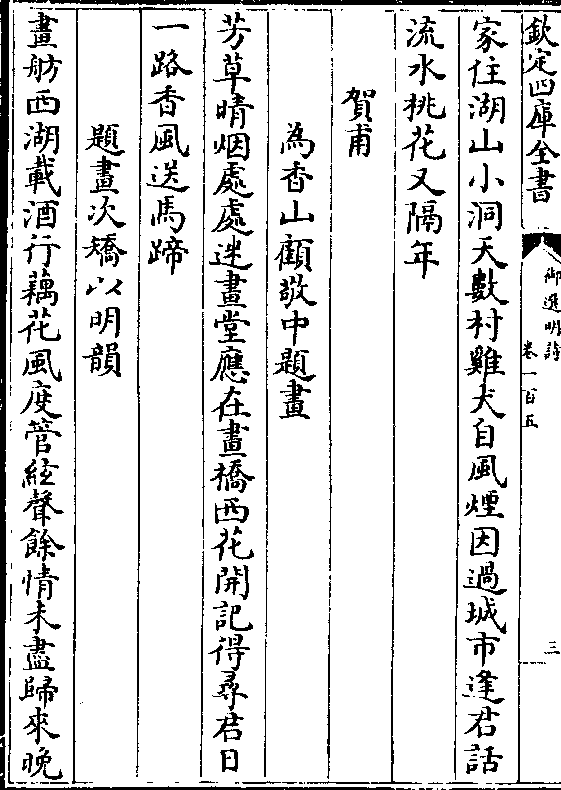 欽定四庫全書
御選明詩
卷一百五
三
家住湖山小洞天數村雞犬自風煙因過城市逢君話
流水桃花又隔年
賀甫
為香山顧敬中題畫
芳草晴烟處處迷畫堂應在畫橋西花開記得尋君日
一路香風送馬蹄
題畫次矯以明韻
畫舫西湖載酒行藕花風度管絃聲餘情未盡歸來晚